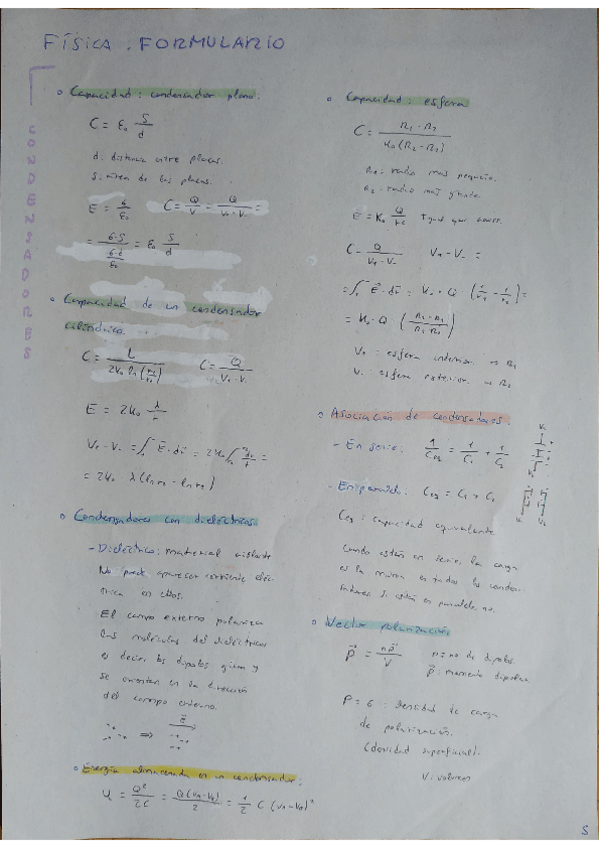 FÍSICA: FORMULARIO
CONDENSADORES
Capacidad: condensador plano.
C = ε₀ S/d
d: distancia entre placas.
S: área de las placas.
E = σ/ε₀ C = Q/V = Q/(V₊-V₋) =
= σ·S/(σ·d/ε₀) = ε₀ S/d
Capacidad de un condensador
cilíndrico.
C = L/(2K₀ ln(r₂/r₁)) C = Q/(V₊-V₋)
E = 2K₀ λ/r
V₊-V₋ = ∫ E·dr = 2K₀ ∫ λdr/r =
= 2K₀ λ(ln r₂ - ln r₁)
Condensadores con dieléctricos
- Dieléctrico: material aislante
No puede aparecer corriente eléc-
trica en ellos.
El campo externo polariza
las moléculas del dieléctrico
es decir, los dipolos giran y
se orientan en la dirección
del campo externo.
⇒ E
Energía almacenada en un condensador:
U = Q²/2C = Q(V₁-V₂)/2 = 1/2 C (V₁-V₂)²
Capacidad: esfera
C = R₁·R₂/(K₀(R₂-R₁))
R₁: radio más pequeño.
R₂: radio más grande.
C = Q/(V₊-V₋) V₊-V₋ =
V₊: esfera interior ⇒ R₁
V₋: esfera exterior ⇒ R₂
Asociación de condensadores.
- En serie: 1/Ceq = 1/C₁ + 1/C₂
- En paralelo: Ceq = C₁ + C₂
Ceq = capacidad equivalente
Cuando están en serie, la carga
es la misma en todos los conden-
sadores. Si están en paralelo, no.
Vector polarización
P = np/V n = no de dipolos.
p: momento dipolar
P = σ: densidad de carga
de polarización.
(densidad superficial).
V: volumen
5